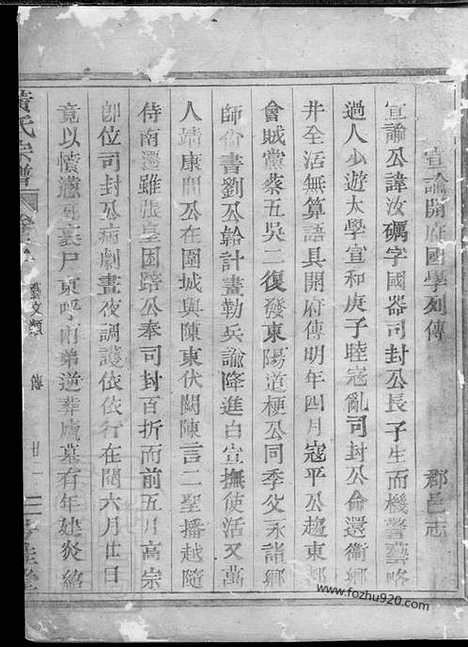 宣諭開府國學列傳
郡邑志
宣諭公諱汝礪字國器司封公長子生而機警藝略
過人少遊太學宣和庚子睦寇亂司封公命還衛鄉
井全活無算語具開府傳明年四月寇平公趨東
會賊黨蔡五吳二復發東陽道梗公同季父永諸鄉
師督書劉公韐計畫勒兵諭降進白宣撫使活又萬
人靖康間公在圍城與陳東伏闕陳言二聖播越隨
侍南還雖張皇困踣公奉司封百折而前五月高宗
卽位司封公病劇晝夜調護依依行在閱六月廿日
竟以憤懣 裹尸東 兩弟逆葬廬墓有年建炎紹
黃氏宗譜
藝文類
傳
廿一
www.fozhu920.com